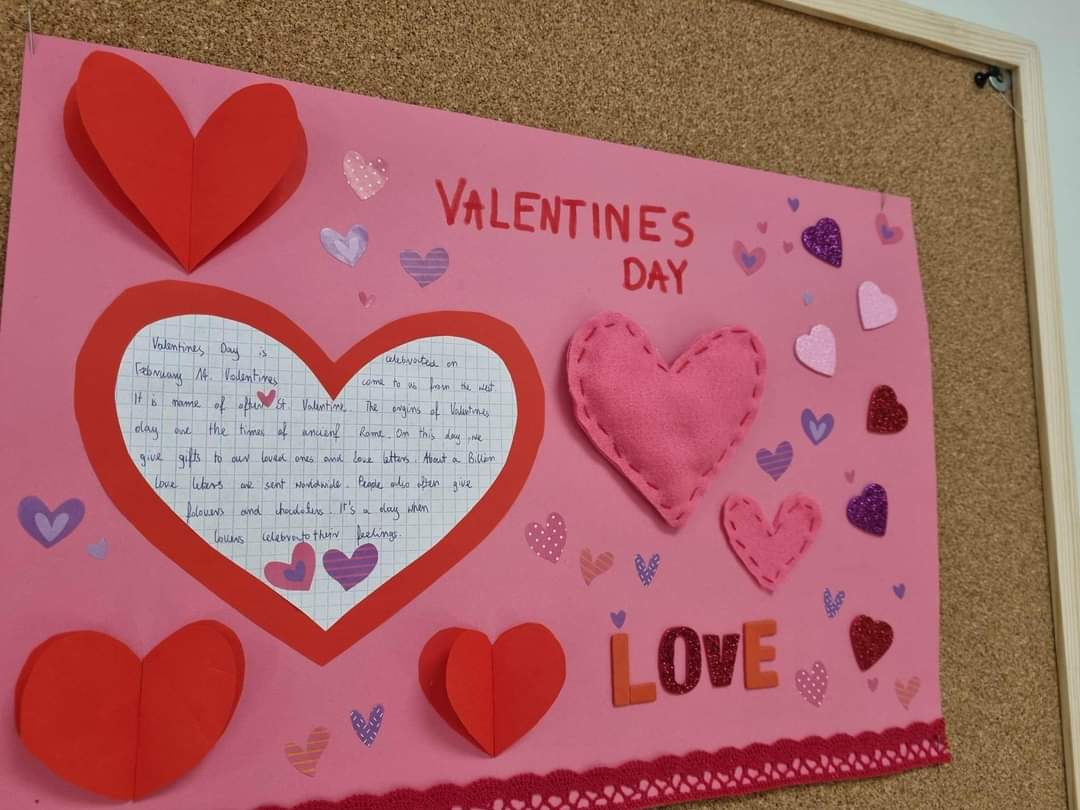 VALENTINES
DAY
Valentines Day is celebrated on
February 14. Valentines come to us from the west.
It is name of after St. Valentine. The origins of Valentines
day are the times of ancient Rome. On this day we
give gifts to our loved ones and love letters. About a Billion
love letters are sent worldwide. People also often give
folowers and chocolates. It's a day when
lovers celebrate their feelings.
LOVE